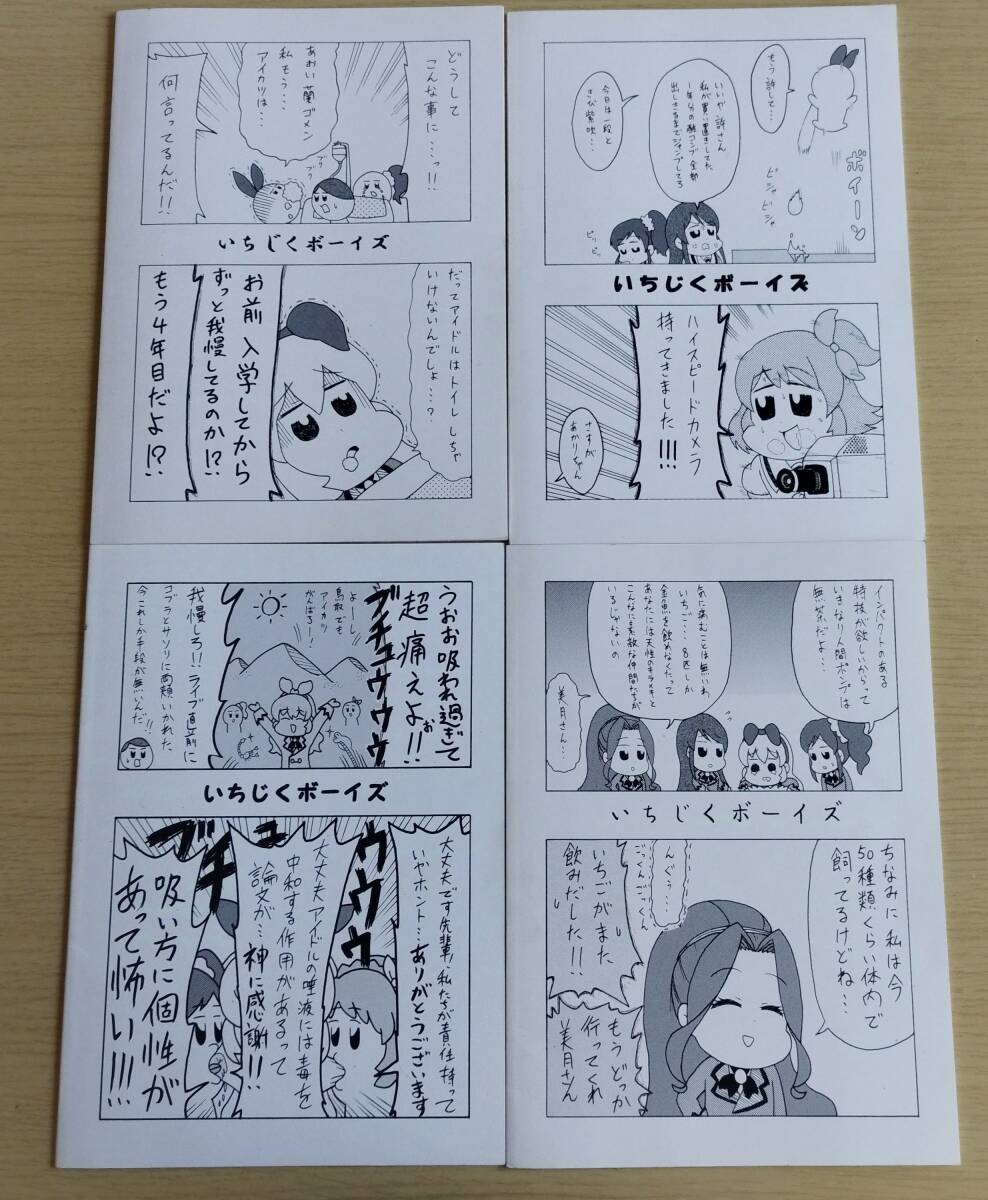 どうして
こんな事に…っ!!
あおい蘭ゴメン
私もう…
アイカツは…
ブク
ブク
何言ってるんだ!!
いちじくボーイズ
だってアイドルはトイレしちゃ
いけないんでしょ…?
お前入学してから
ずっと我慢してるのか!?
もう4年目だよ!?
もう許して…
いいや許さん
私が買い置きしてた
1年分の酢コンブ全部
出しきるまでジャンプしてろ
今日は一段と
きび紫吹…
ボイーン
ピシャ
ピシャ
ピッピッ
いちじくボーイズ
ハイスピードカメラ
持ってきました!!!
さすが
あかりちゃん
うおお吸われ過ぎて
超痛えよぉ!!
ブチュウウウ
よーーし
鳥取でも
アイカツ
がんばるー!
我慢しろ!!ライブ直前に
コブラとサソリに両頬いかれた
今これしか手段が無いんだ!!
いちじくボーイズ
大丈夫です先輩!私たちが責任持って
いやホント…ありがとうございます
ブチュウウウ
大丈夫アイドルの唾液には毒を
中和する作用があるって
論文が…神に感謝!!
吸い方に個性が
あって怖い!!!
インパクトのある
特技が欲しいからって
いきなり人間ポンプは
無茶だよ…
気に病むことは無いわ
いちご…8匹しか
金魚を飲めなくたって
あなたには天性のキラメキと
こんなに素敵な仲間たちが
いるじゃないの
美月さん…
いちじくボーイズ
ちなみに私は今
50種類くらい体内で
飼ってるけどね…
んぐぅ…
ごっくんごっくん
いちごがまた
飲みだした!!
もうどっか
行ってくれ
美月さん